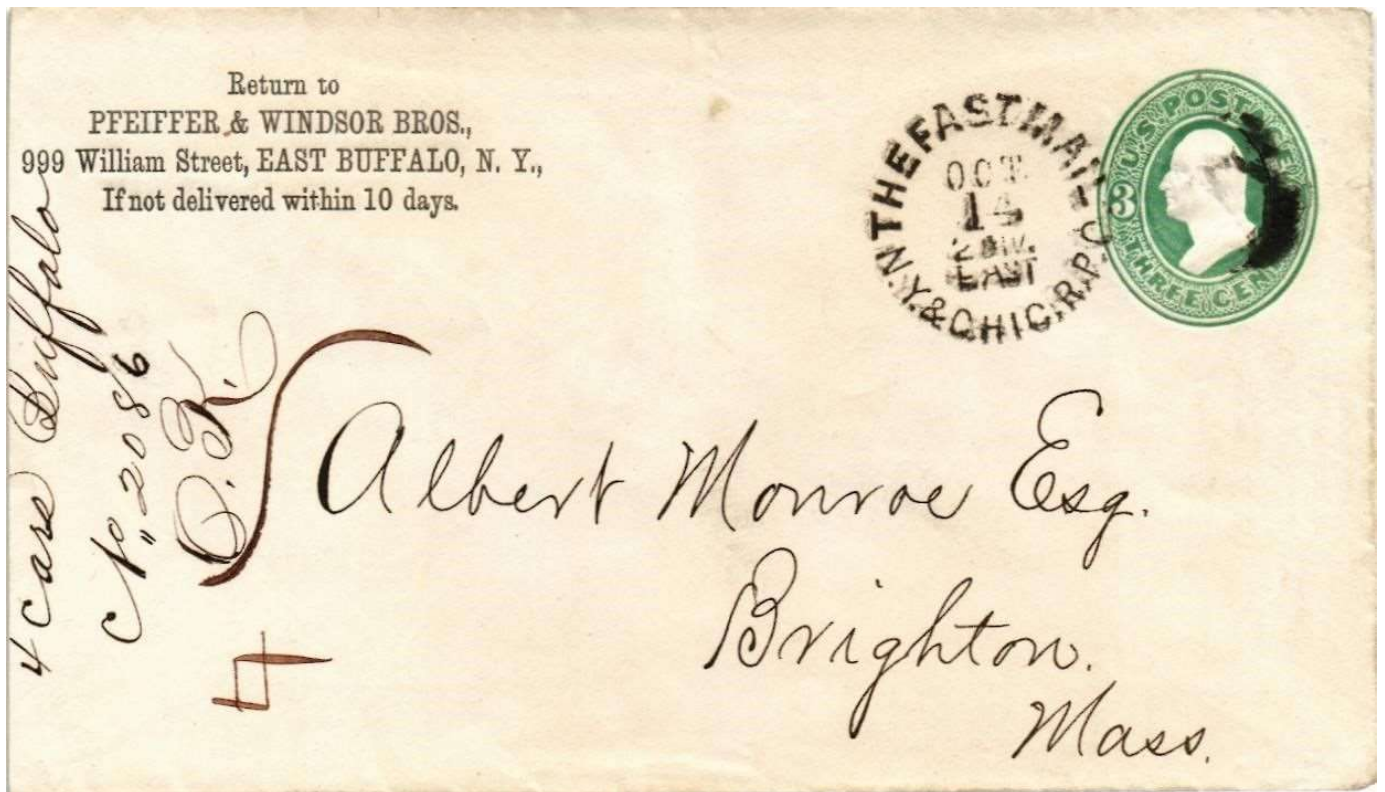 Return to
PFEIFFER & WINDSOR BROS.,
999 William Street, EAST BUFFALO, N. Y.,
If not delivered within 10 days.
THE FAST MAIL
OCT
14
EAST
N.Y. & CHIC. R.P.O.
U.S. POST
3
THREE CEN
4 Cars Buffalo
No. 2086
O.K.
4
Albert Monroe Esq.
Brighton.
Mass.